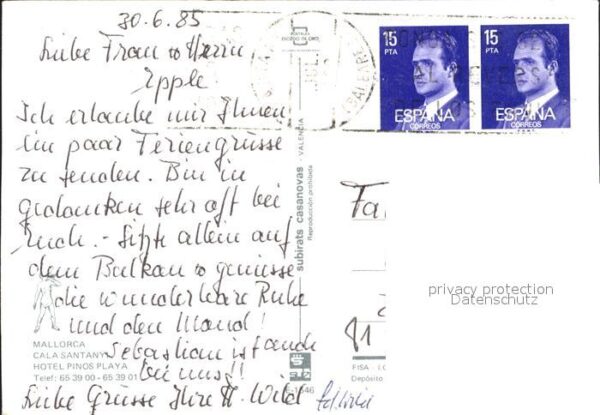 30.6.85
Liebe Frau & Herrn
Epple
Ich erlaube mir Ihnen
ein paar Feriengrüsse
zu senden. Bin in
gedanken sehr oft bei
Euch. - Sitze allein auf
dem Balkan & geniesse
die wunderbare Ruhe
und den Mond!
Sebastian ist auch
bei uns!!
Liebe Grüsse Ihre H. Wild
MALLORCA
CALA SANTANY
HOTEL PINOS PLAYA
Telef: 65 39 00 - 65 39 01
subirats casanovas
VALENCIA
Reproducción prohibida
15
PTA
ESPAÑA
CORREOS
15
PTA
ESPAÑA
CORREOS
Fa
81
FISA
Depósito
privacy protection
Datenschutz